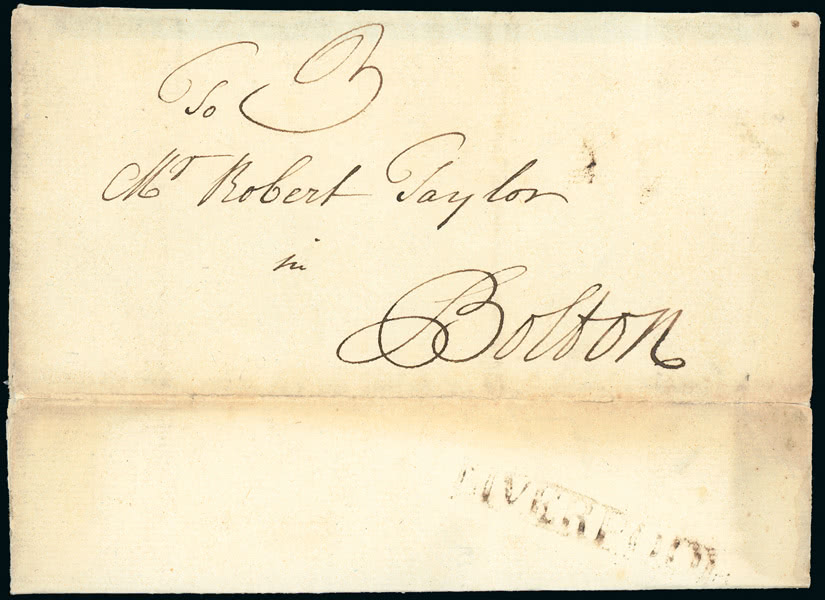 To 3
Mr Robert Taylor
in
Bolton
LIVERPOOL